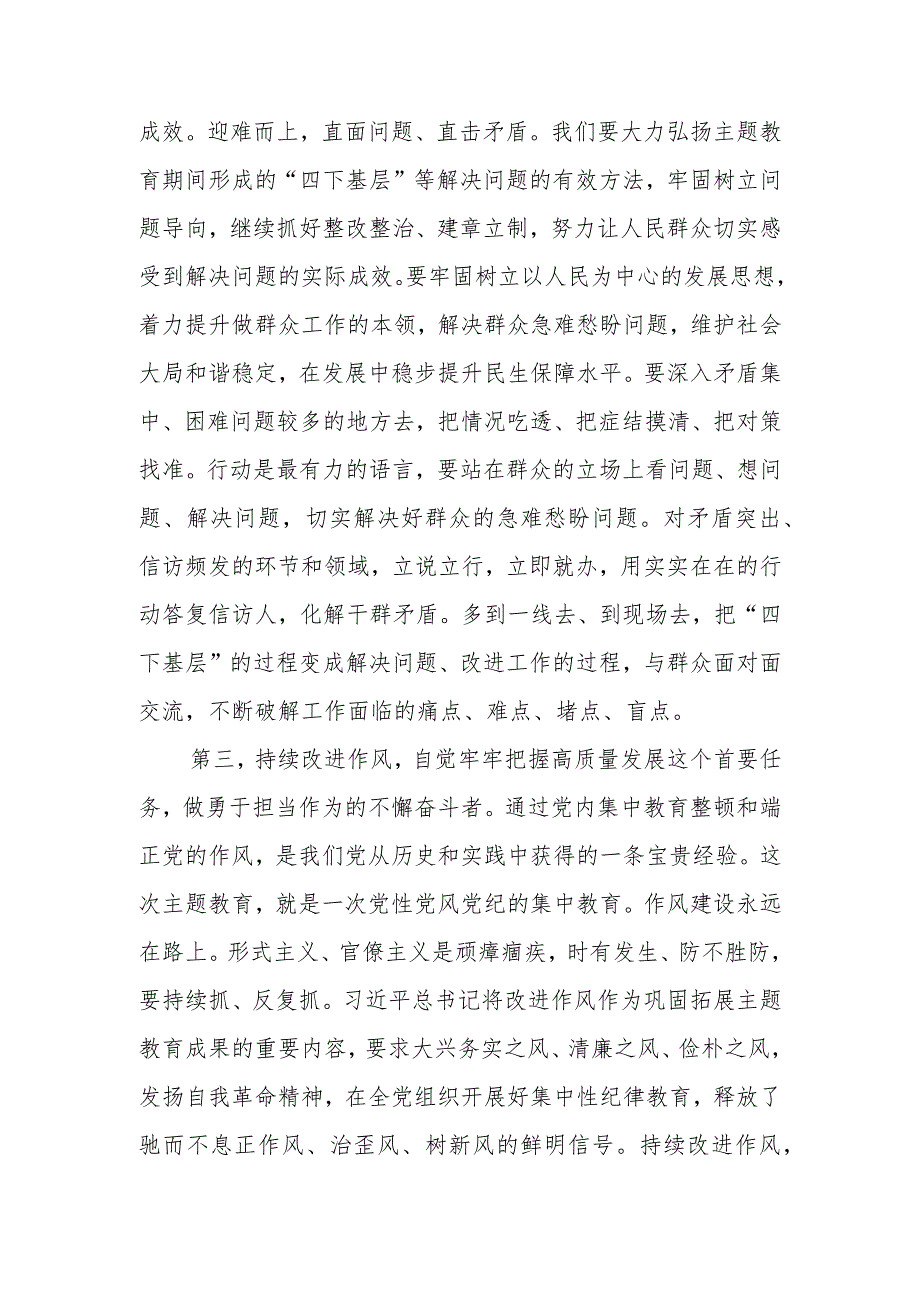 成效。迎难而上，直面问题、直击矛盾。我们要大力弘扬主题教
育期间形成的“四下基层”等解决问题的有效方法，牢固树立问
题导向，继续抓好整改整治、建章立制，努力让人民群众切实感
受到解决问题的实际成效。要牢固树立以人民为中心的发展思想，
着力提升做群众工作的本领，解决群众急难愁盼问题，维护社会
大局和谐稳定，在发展中稳步提升民生保障水平。要深入矛盾集
中、困难问题较多的地方去，把情况吃透、把症结摸清、把对策
找准。行动是最有力的语言，要站在群众的立场上看问题、想问
题、解决问题，切实解决好群众的急难愁盼问题。对矛盾突出、
信访频发的环节和领域，立说立行，立即就办，用实实在在的行
动答复信访人，化解干群矛盾。多到一线去、到现场去，把“四
下基层”的过程变成解决问题、改进工作的过程，与群众面对面
交流，不断破解工作面临的痛点、难点、堵点、盲点。
第三，持续改进作风，自觉牢牢把握高质量发展这个首要任
务，做勇于担当作为的不懈奋斗者。通过党内集中教育整顿和端
正党的作风，是我们党从历史和实践中获得的一条宝贵经验。这
次主题教育，就是一次党性党风党纪的集中教育。作风建设永远
在路上。形式主义、官僚主义是顽瘴痼疾，时有发生、防不胜防，
要持续抓、反复抓。习近平总书记将改进作风作为巩固拓展主题
教育成果的重要内容，要求大兴务实之风、清廉之风、俭朴之风，
发扬自我革命精神，在全党组织开展好集中性纪律教育，释放了
驰而不息正作风、治歪风、树新风的鲜明信号。持续改进作风，